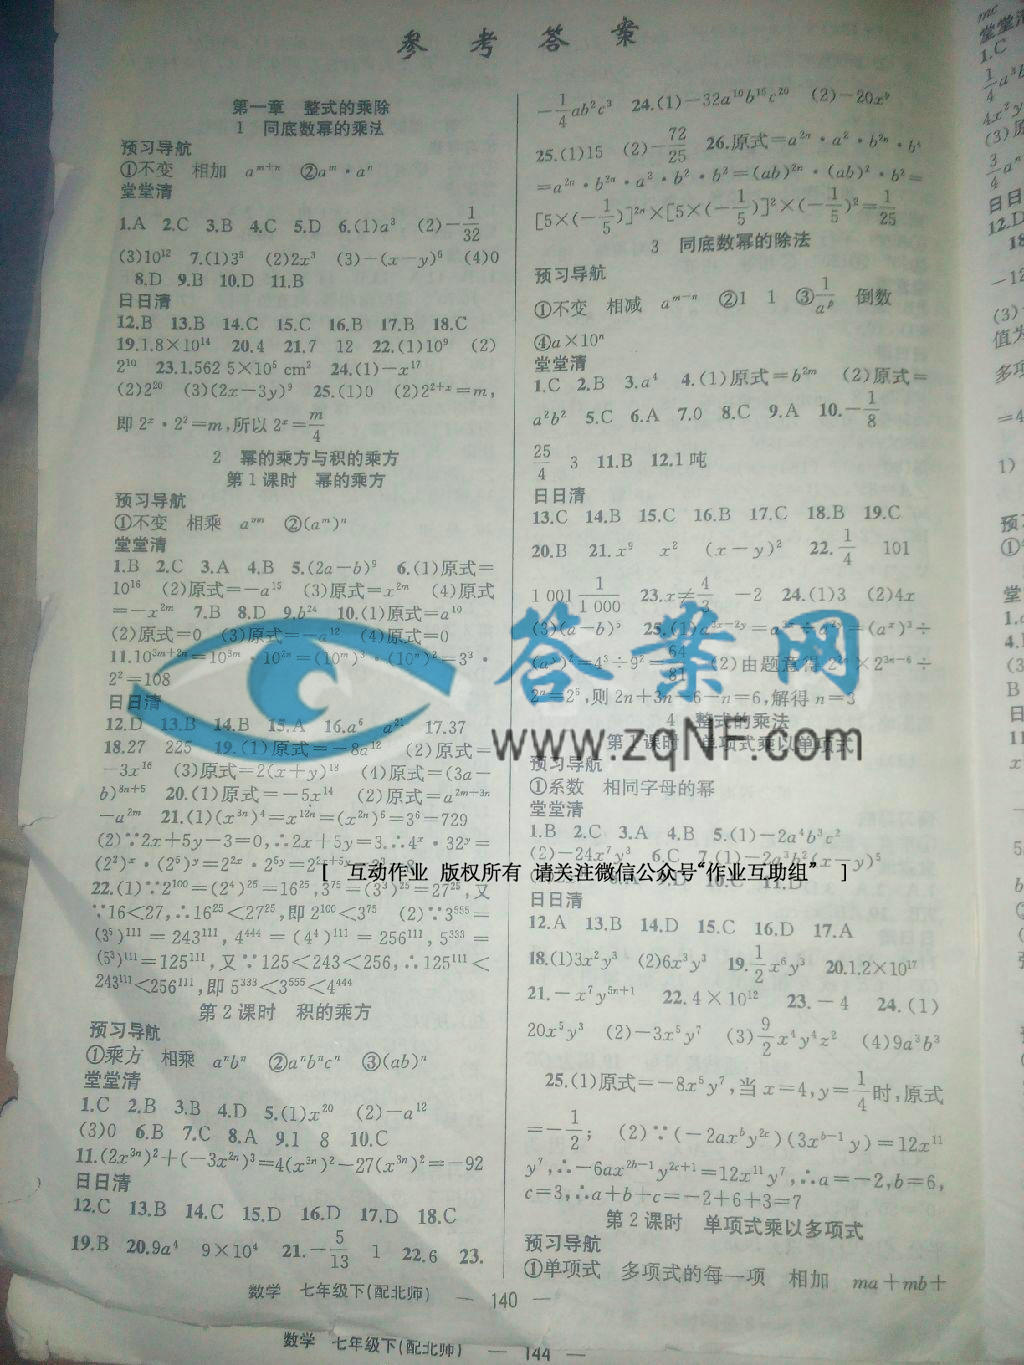 参考答案
第一章 整式的乘除
1 同底数幂的乘法
预习导航
①不变 相加 aᵐ⁺ⁿ ②aᵐ·aⁿ
堂堂清
1.A 2.C 3.B 4.C 5.D 6.(1)a³ (2)-1/32
(3)10¹² 7.(1)3⁸ (2)2x³ (3)-(x-y)⁶ (4)0
8.D 9.B 10.D 11.B
日日清
12.B 13.B 14.C 15.C 16.B 17.B 18.C
19.1.8×10¹⁴ 20.4 21.7 12 22.(1)10⁹ (2)
2¹⁰ 23.1.562 5×10⁵ cm² 24.(1)-x¹⁷
(2)2²⁰ (3)(2x-3y)⁹ 25.(1)0 (2)2²⁺ˣ=m,
即 2ˣ·2²=m,所以 2ˣ=m/4
2 幂的乘方与积的乘方
第1课时 幂的乘方
预习导航
①不变 相乘 aᵐⁿ ②(aᵐ)ⁿ
堂堂清
1.B 2.C 3.A 4.B 5.(2a-b)⁹ 6.(1)原式=
10¹⁶ (2)原式=-a¹⁵ (3)原式=x²ᵐ (4)原式
=-x²ᵐ 7.B 8.D 9.b²⁴ 10.(1)原式=a¹⁰
(2)原式=0 (3)原式=-a¹² (4)原式=0
11.10³ᵐ⁺²ⁿ=10³ᵐ·10²ⁿ=(10ᵐ)³·(10ⁿ)²=3³·
2²=108
日日清
12.D 13.B 14.B 15.A 16.a⁶ a²¹ 17.37
18.27 225 19.(1)原式=-8a¹² (2)原式=
-3x¹⁶ (3)原式=2(x+y)¹⁸ (4)原式=(3a-
b)⁸ⁿ⁺⁵ 20.(1)原式=-5x¹⁴ (2)原式=a²ᵐ⁻³ⁿ
-a²ᵐ 21.(1)(x³ⁿ)⁴=x¹²ⁿ=(x²ⁿ)⁶=3⁶=729
(2)∵2x+5y-3=0,∴2x+5y=3.∴4ˣ·32ʸ=
(2²)ˣ·(2⁵)ʸ=2²ˣ·2⁵ʸ=2²ˣ⁺⁵ʸ=2³=8
22.(1)∵2¹⁰⁰=(2⁴)²⁵=16²⁵,3⁷⁵=(3³)²⁵=27²⁵,又
∵16<27,∴16²⁵<27²⁵,即2¹⁰⁰<3⁷⁵ (2)∵3⁵⁵⁵=
(3⁵)¹¹¹=243¹¹¹,4⁴⁴⁴=(4⁴)¹¹¹=256¹¹¹,5³³³=
(5³)¹¹¹=125¹¹¹,又∵125<243<256,∴125¹¹¹<
243¹¹¹<256¹¹¹,即 5³³³<3⁵⁵⁵<4⁴⁴⁴
第2课时 积的乘方
预习导航
①乘方 相乘 aⁿbⁿ ②aⁿbⁿcⁿ ③(ab)ⁿ
堂堂清
1.C 2.B 3.B 4.D 5.(1)x²⁰ (2)-a¹²
(3)0 6.B 7.C 8.A 9.1 8 10.C
11.(2x³ⁿ)²+(-3x²ⁿ)³=4(x³ⁿ)²-27(x³ⁿ)²=-92
日日清
12.C 13.B 14.C 15.D 16.D 17.D 18.C
19.B 20.9a⁴ 9×10⁴ 21.-5/13 1 22.6 23.
-1/4ab²c³ 24.(1)-32a¹⁰b¹⁵c²⁰ (2)-20x⁹
25.(1)15 (2)-72/25 26.原式=a²ⁿ·a²·b²ⁿ·b⁴
=a²ⁿ·b²ⁿ·a²·b²·b²=(ab)²ⁿ·(ab)²·b²=
[5×(-1/5)]²ⁿ×[5×(-1/5)]²×(-1/5)²=1/25
3 同底数幂的除法
预习导航
①不变 相减 aᵐ⁻ⁿ ②1 1 ③1/aᵖ 倒数
④a×10ⁿ
堂堂清
1.C 2.B 3.a⁴ 4.(1)原式=b²ᵐ (2)原式=
a²b² 5.C 6.A 7.0 8.C 9.A 10.-1/8
25/4 3 11.B 12.1吨
日日清
13.C 14.B 15.C 16.B 17.C 18.B 19.C
20.B 21.x⁹ x² (x-y)² 22.1/4 101
1 001 1/1 000 23.x≠4/3 -2 24.(1)3 (2)4x
(3)(a-b)⁵ 25.(1)a³ˣ⁻²ʸ=a³ˣ÷a²ʸ=(aˣ)³÷
(aʸ)²=4³÷9²=64/81 (2)由题意得 2²ⁿ×2³ⁿ⁻⁶÷
2ⁿ=2⁶,则 2n+3n-6-n=6,解得 n=3
4 整式的乘法
第1课时 单项式乘以单项式
预习导航
①系数 相同字母的幂
堂堂清
1.B 2.C 3.A 4.B 5.(1)-2a⁴b³c²
(2)-24x⁷y³ 6.C 7.(1)-2a³b²(x-y)⁵
10.C 11.B
日日清
12.A 13.B 14.D 15.C 16.D 17.A
18.(1)3x²y³ (2)6x³y³ 19.1/2x⁶y³ 20.1.2×10¹⁷
21.-x⁷y⁵ⁿ⁺¹ 22.4×10¹² 23.-4 24.(1)
20x⁵y³ (2)-3x⁵y⁷ (3)9/2x⁴y⁴z² (4)9a³b³
25.(1)原式=-8x⁵y⁷,当 x=4,y=1/4时,原式
=-1/2; (2)∵(-2axᵇy²ᶜ)(3xᵇ⁻¹y)=12x¹¹
y⁷,∴-6ax²ᵇ⁻¹y²ᶜ⁺¹=12x¹¹y⁷,∴a=-2,b=6,
c=3,∴a+b+c=-2+6+3=7
第2课时 单项式乘以多项式
预习导航
①单项式 多项式的每一项 相加 ma+mb+
数学 七年级下(配北师) — 140 —
数学 七年级下(配北师) — 144 —
答案网
www.zqNF.com
[ 互动作业 版权所有 请关注微信公众号“作业互助组” ]